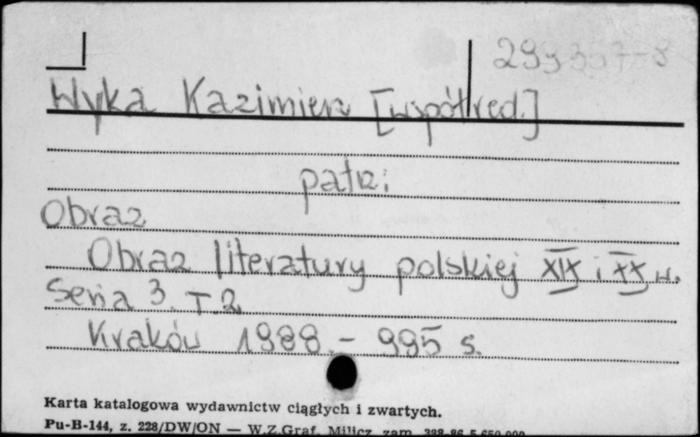 Wyka Kazimierz [współred.]
patrz:
Obraz
Obraz literatury polskiej XIX i XX w.
Seria 3. T.2
Kraków 1988. - 995 s.
Karta katalogowa wydawnictw ciągłych i zwartych.
Pu-B-144, z. 228/DW/ON — W.Z.Graf. Milicz zam.